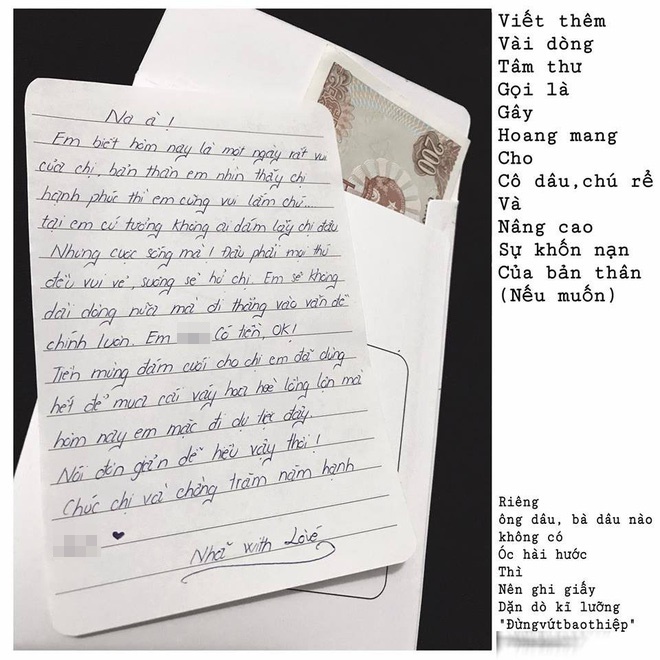 Na à !
Em biết hôm nay là một ngày rất vui
của chị, bản thân em nhìn thấy chị
hạnh phúc thì em cũng vui lắm chứ...
tại em cứ tưởng không ai dám lấy chị đâu
Nhưng cuộc sống mà ! Đâu phải mọi thứ
đều vui vẻ, sướng sẽ hở chị. Em sẽ không
dài dòng nữa mà đi thẳng vào vấn đề
chính luôn. Em Có tiền, OK!
Tiền mừng đám cưới cho chị em đã dùng
hết để mua cái váy hoa hoè lồng lộn mà
hôm nay em mặc đi dự tiệc đấy.
Nói đơn giản dễ hiểu vậy thôi !
Chúc chị và chồng trăm năm hạnh
Nhã with Love
200
Viết thêm
Vài dòng
Tâm thư
Gọi là
Gây
Hoang mang
Cho
Cô dâu,chú rể
Và
Nâng cao
Sự khốn nạn
Của bản thân
(Nếu muốn)
Riêng
ông dâu, bà dâu nào
không có
Óc hài hước
Thì
Nên ghi giấy
Dặn dò kĩ lưỡng
"Đừngvứtbaothiệp"